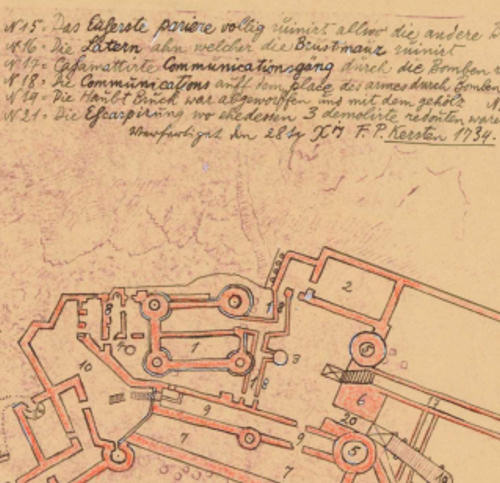 N 15 = Das Eüserste pariere voltig rüinirt allwo die andere
N 16 = Die Latern ahn welcher die Brüstmaur rüinirt
N 17 = Casamattirte Communicationsgäng dürch die Bomben
N 18 = Die Communications auff dem place des armes dürch Bomben
N 19 = Die Haübt Brück war abgeworffen und mit dem gehöltz
N 21 = Die Escarpirung wo ehedessen 3 demolirte redouten ware
Verfertiget den 28ty X7 F. P. Kersten 1734.
2
1
8
1
5
3
10
18
6
17
9
20
9
7
5
7